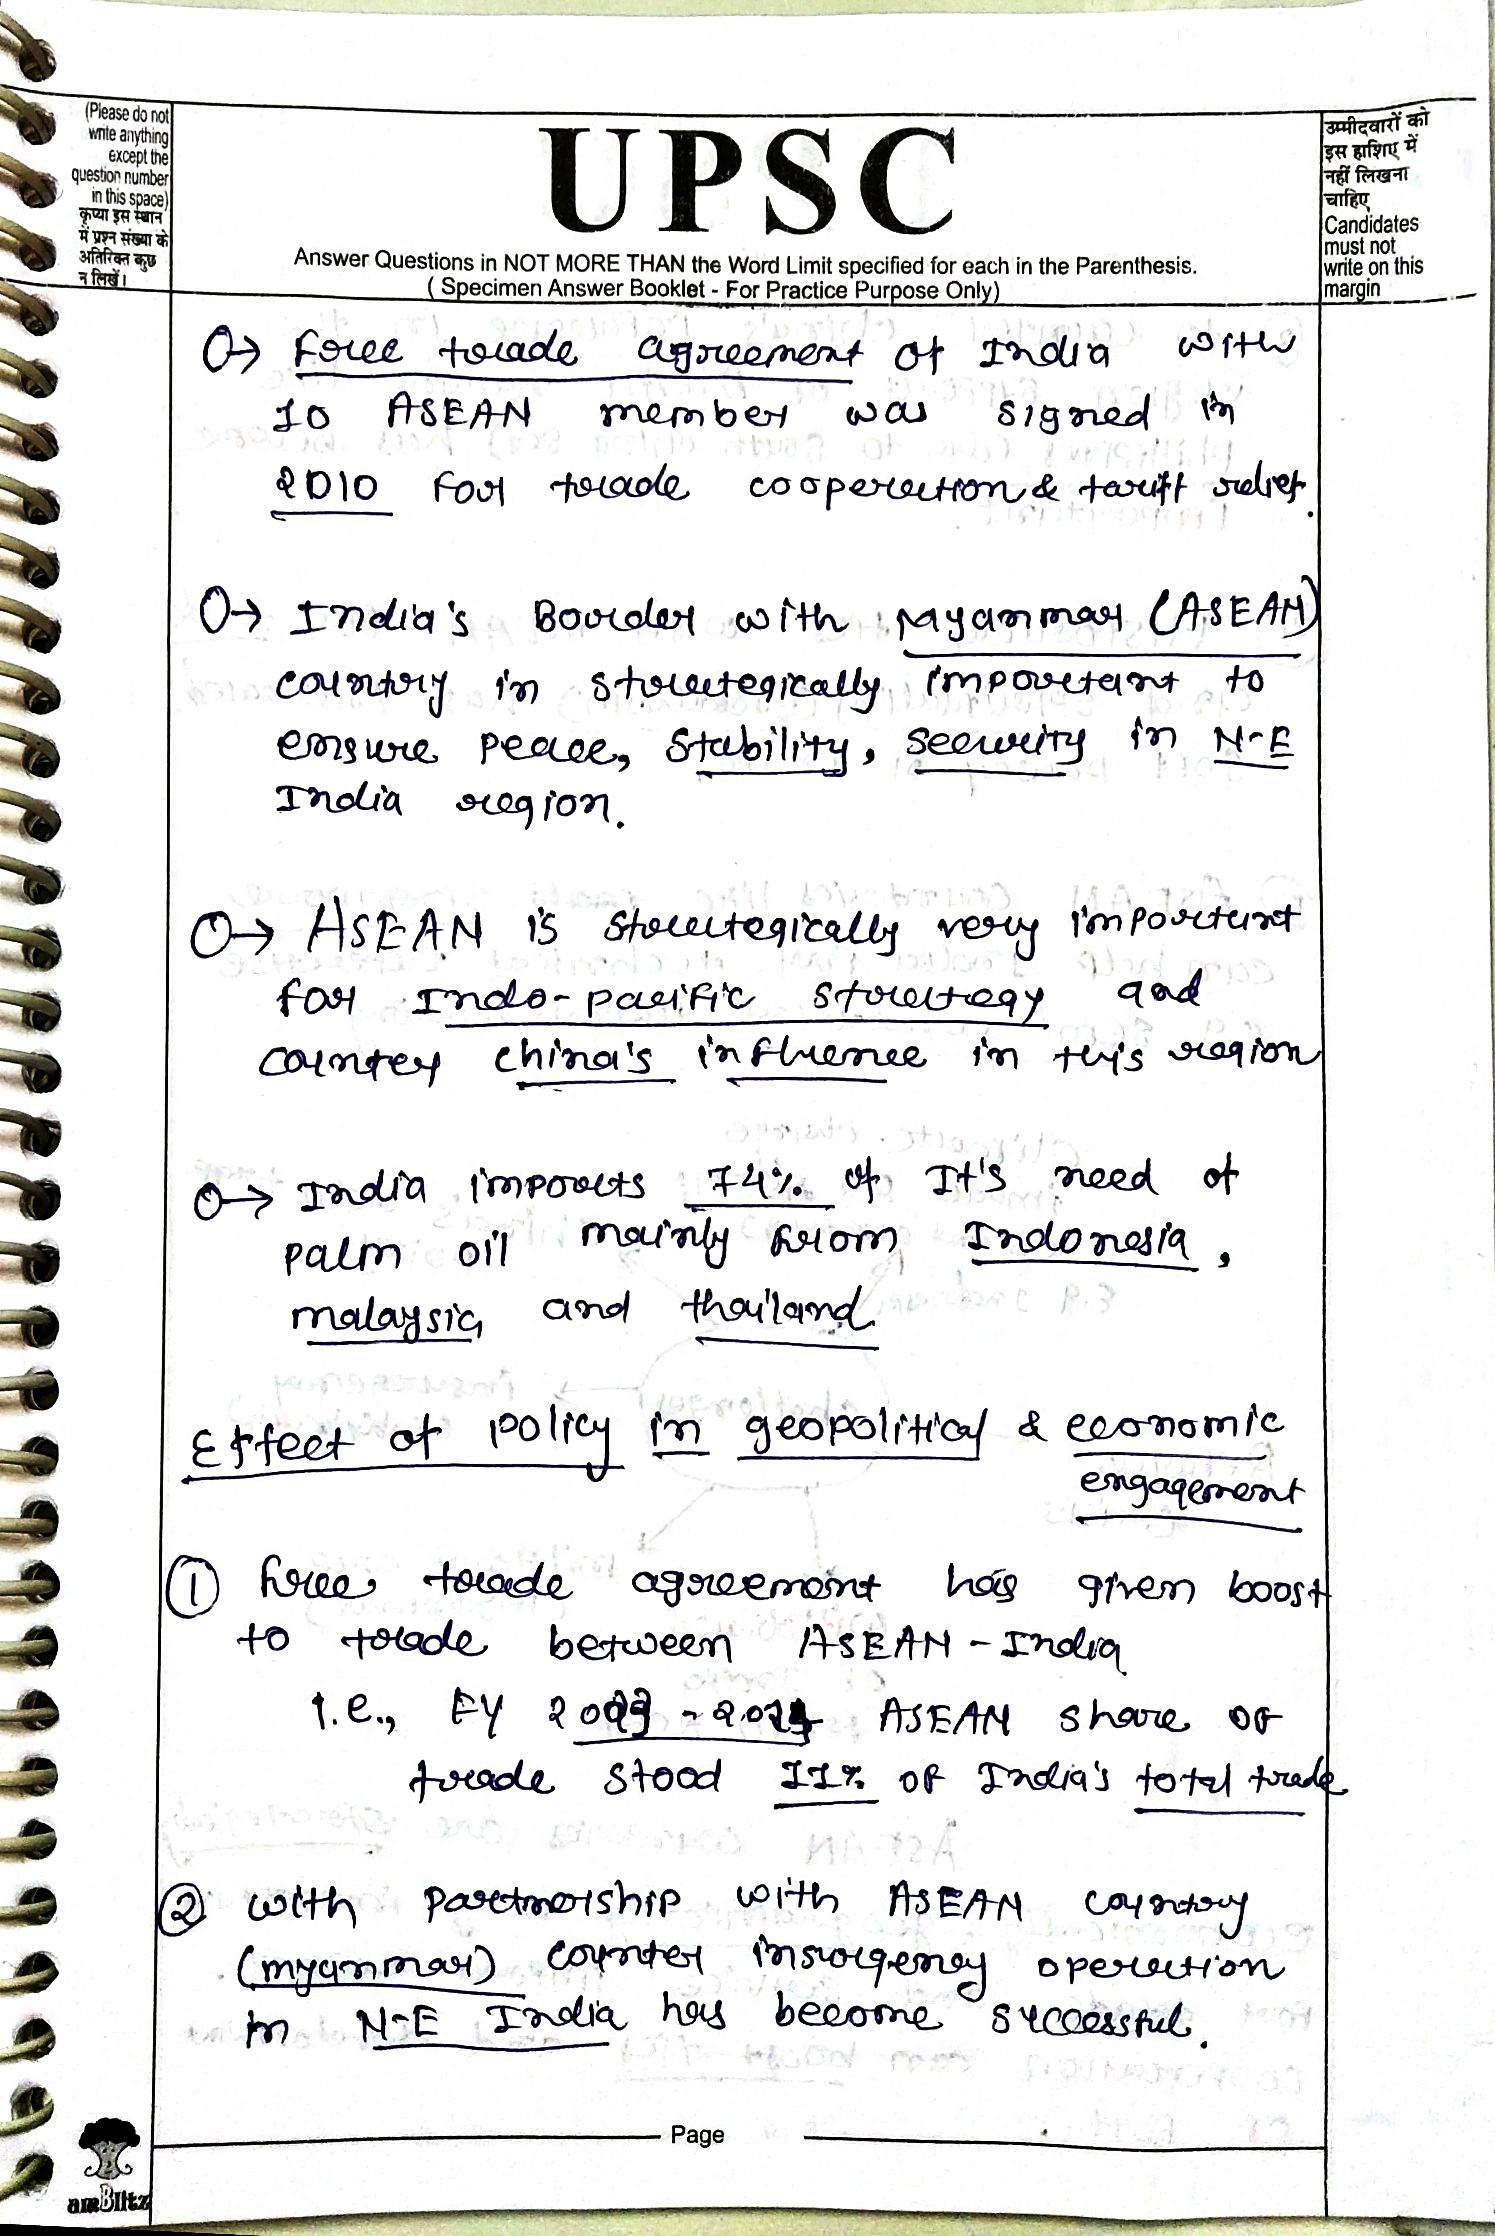 (Please do not
write anything
except the
question number
in this space)
कृप्या इस स्थान
में प्रश्न संख्या के
अतिरिक्त कुछ
न लिखें।
UPSC
Answer Questions in NOT MORE THAN the Word Limit specified for each in the Parenthesis.
( Specimen Answer Booklet - For Practice Purpose Only)
उम्मीदवारों को
इस हाशिए में
नहीं लिखना
चाहिए
Candidates
must not
write on this
margin
O→ Free trade agreement of India with
10 ASEAN member was signed in
2010 for trade cooperation & tariff relief.
O→ India's Border with Myanmar (ASEAN)
country in strategically important to
ensure peace, stability, security in N-E
India region.
O→ ASEAN is strategically very important
for Indo-pacific strategy and
counter china's influence in this region
O→ India imports 74% of It's need of
palm oil mainly from Indonesia,
malaysia and thailand
Effect of policy in geopolitical & economic
engagement
① free trade agreement has given boost
to trade between ASEAN - India
i.e., FY 2023 - 2024 ASEAN share of
trade stood 11% of India's total trade
② with partnership with ASEAN country
(myanmar) counter insurgency operation
in N-E India has become successful.
Page
amBlitz